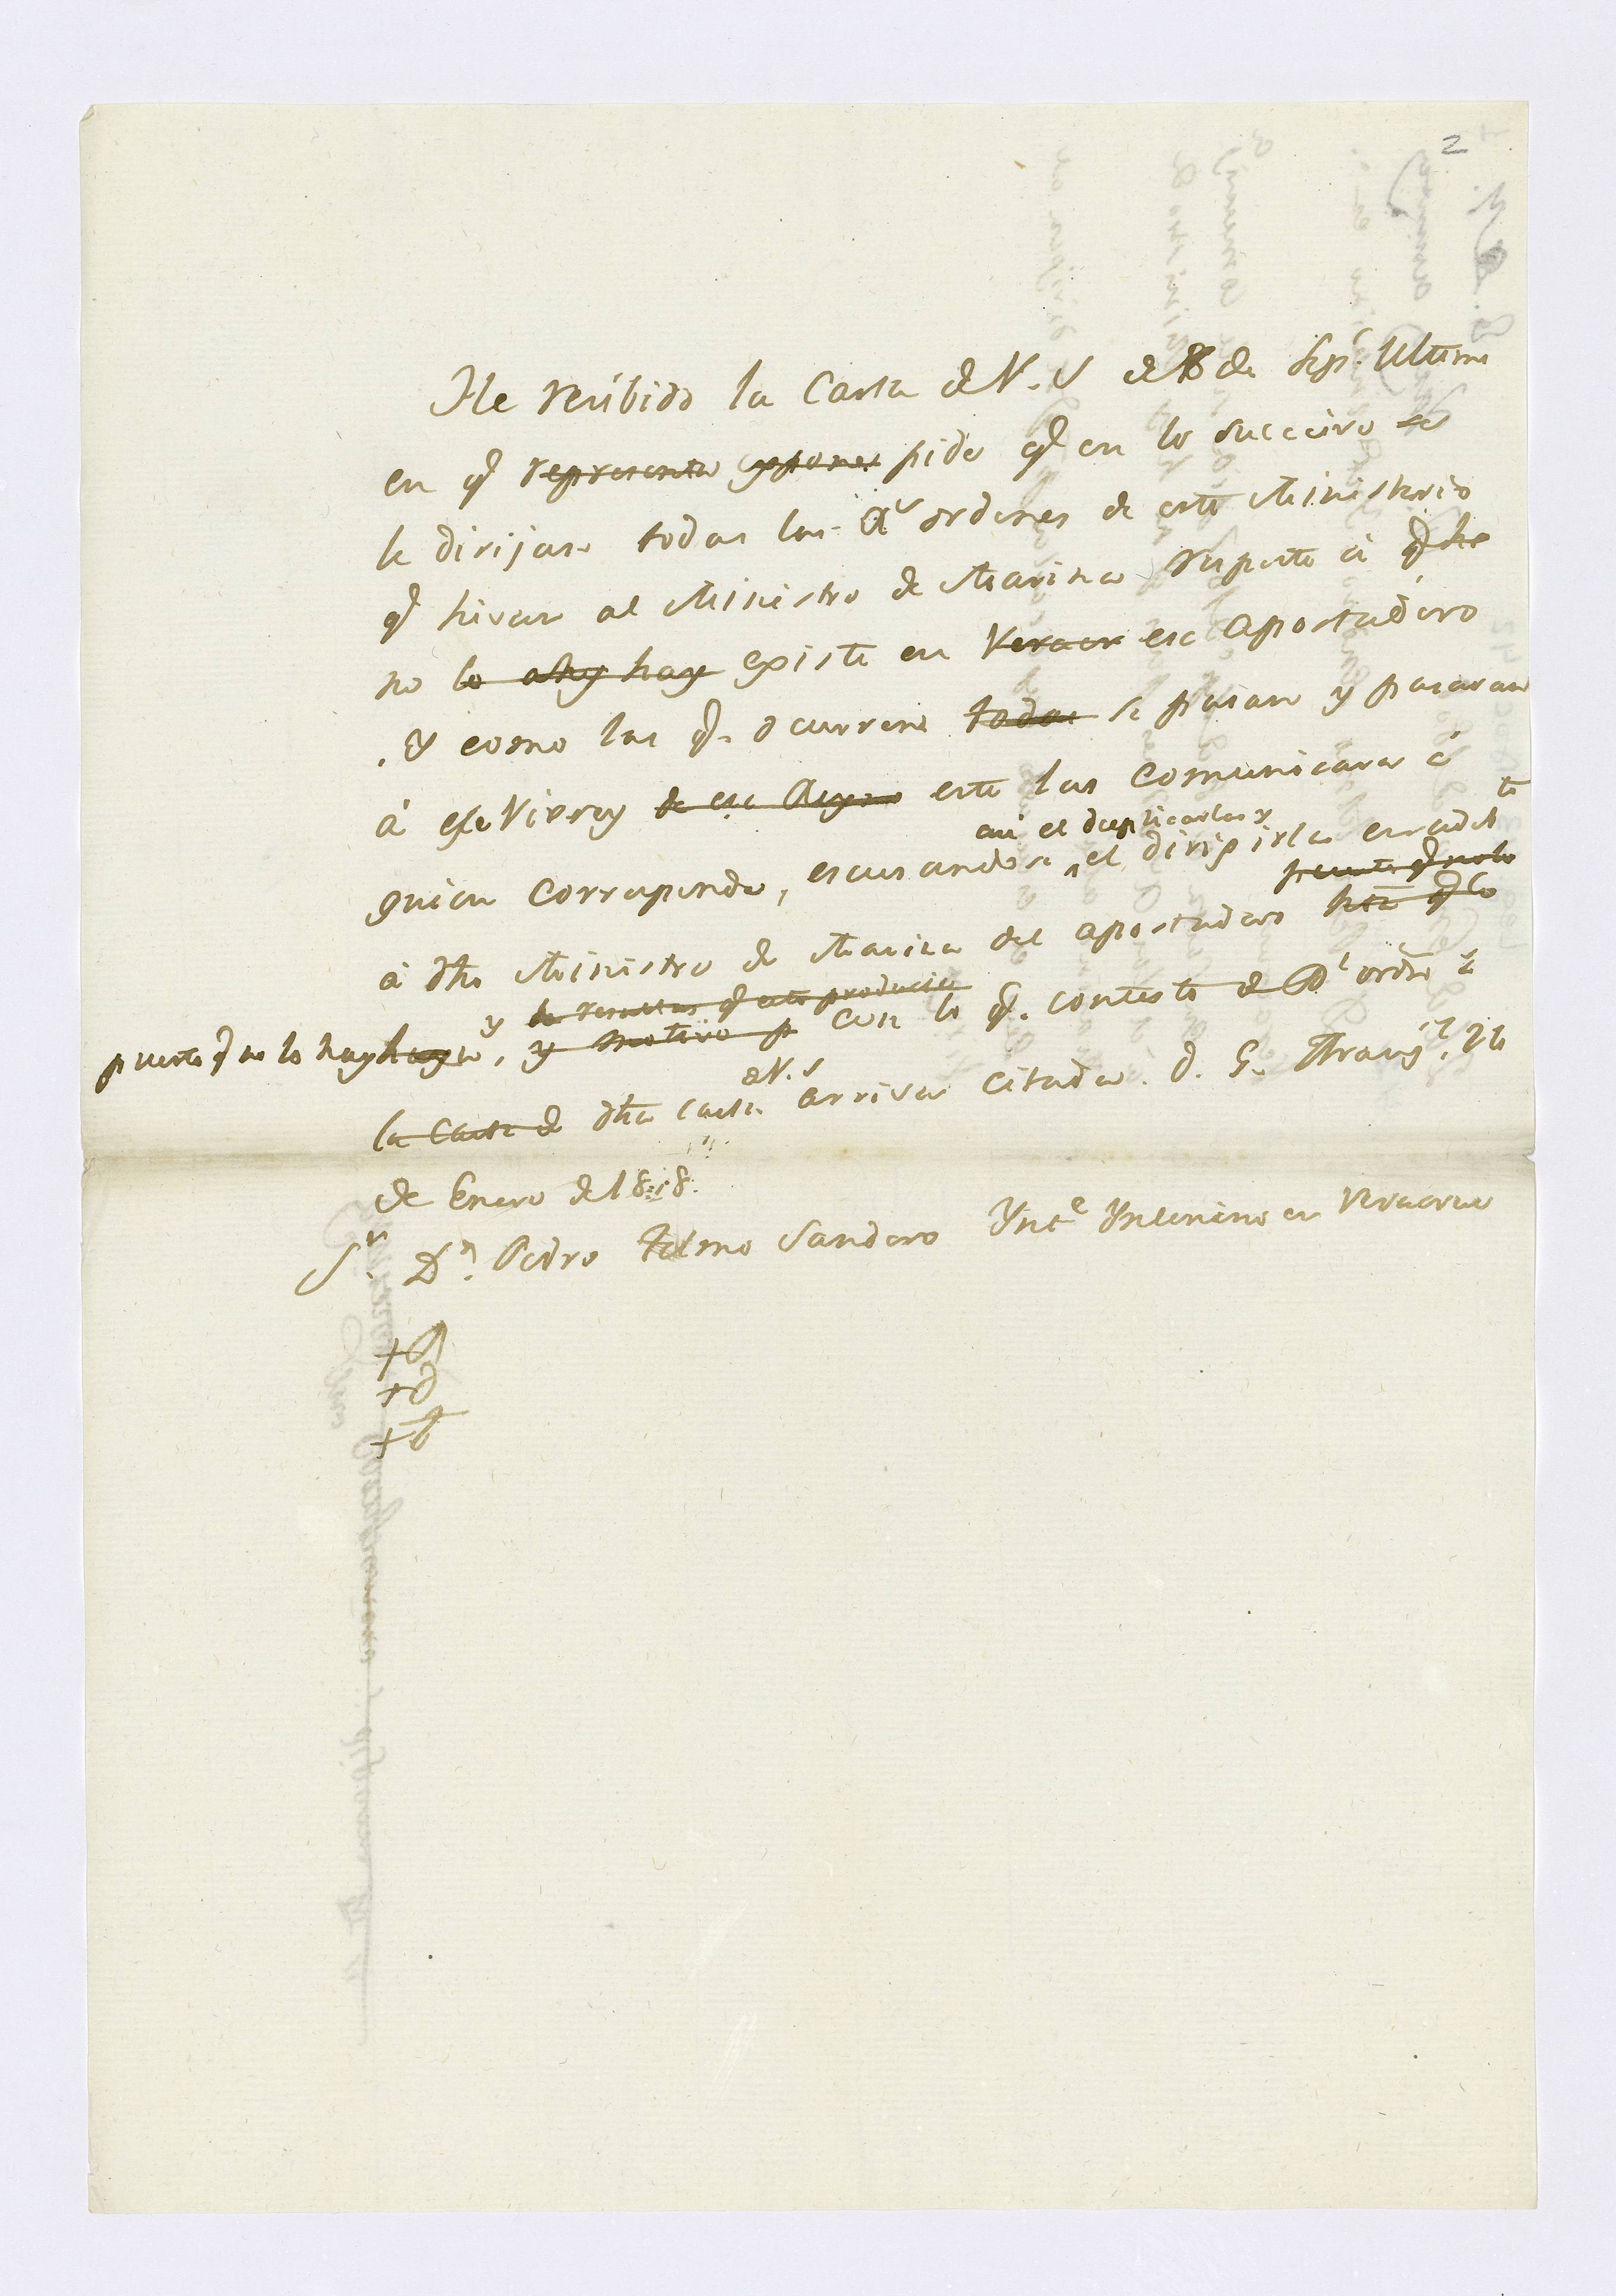 2
He reúbido la Carta de V. S de 8 de Sep. Ultimo
en q̃ representa expone pide q̃ en lo succeivo se
le dirijan todas las Rs ordenes de este Ministerio
q̃ hivan al Ministro de Marina respecto á q̃
no lo ahy hay existe en Veracr ese Apostadero
. Y como las q̃. ocurren todas se pasan y pasaran
á ese Virrey de ese Reyno este las comunicara á
quien corresponda, escusandose el dirigirla
asi el duplicarlas y
á dho Ministro de Marina del apostadero hta q̃ lo
puesto q̃ no lo hay haya, y motivo p con lo q̃. contesto de Rl orden á
y de resultas q̃ esto producia
la Carta de dha carta de V. S arriva citada. D. G. Aranjz. 26
de Enero de 1818.
Sr. Dn. Pedro Telmo Landero Ynte Ynterino en Veracruz